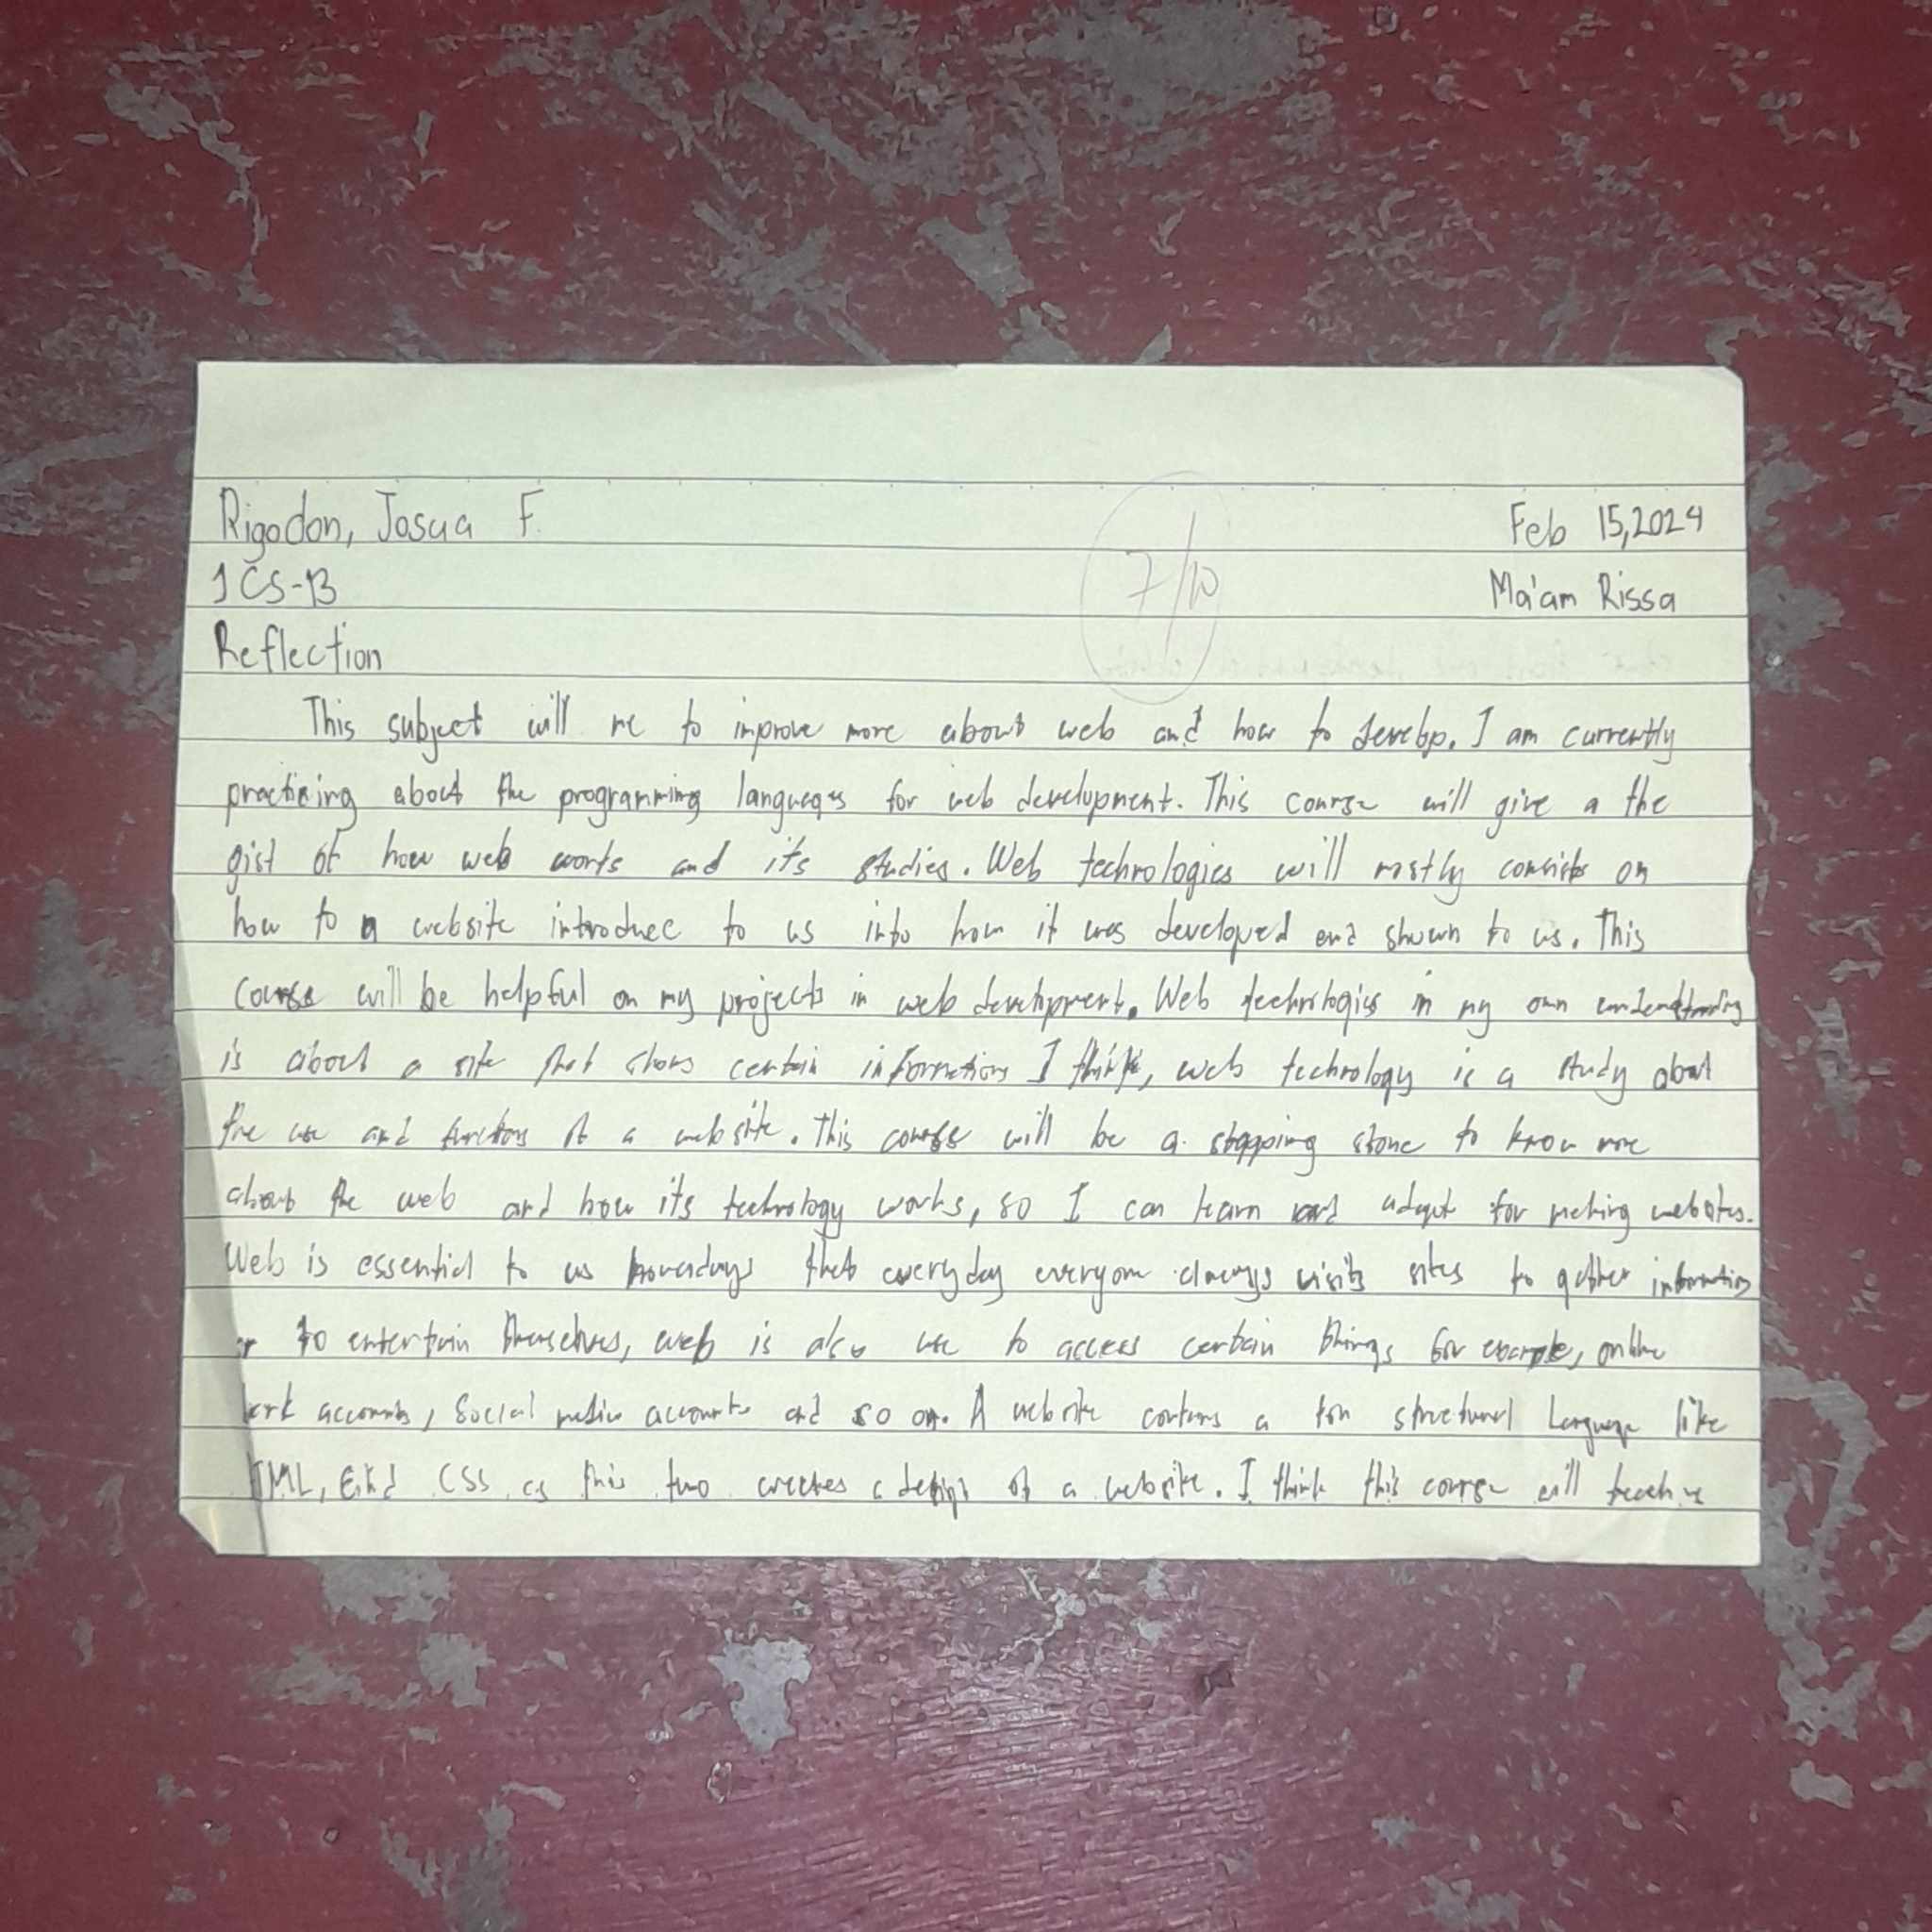 Rigodon, Josua F.
Feb 15, 2024
1CS-B
7/10
Ma'am Rissa
Reflection
This subject will me to improve more about web and how to develop. I am currently
practicing about the programming languages for web development. This course will give a the
gist of how web works and it's studies. Web technologies will mostly consists on
how to a website introduce to us into how it was developed and shown to us. This
course will be helpful on my projects in web development. Web technologies in my own understanding
is about a site that shows certain informations I think, web technology is a study about
the use and functions of a website. This course will be a stepping stone to know more
about the web and how its technology works, so I can learn and adapt for making websites.
Web is essential to us nowadays that everyday everyone always visits sites to gather information
or to entertain themselves, web is also use to access certain things for example, online
accounts, social media accounts and so on. A website contains a structural language like
HTML, and CSS as this two creates a design of a website. I think this course will teach us